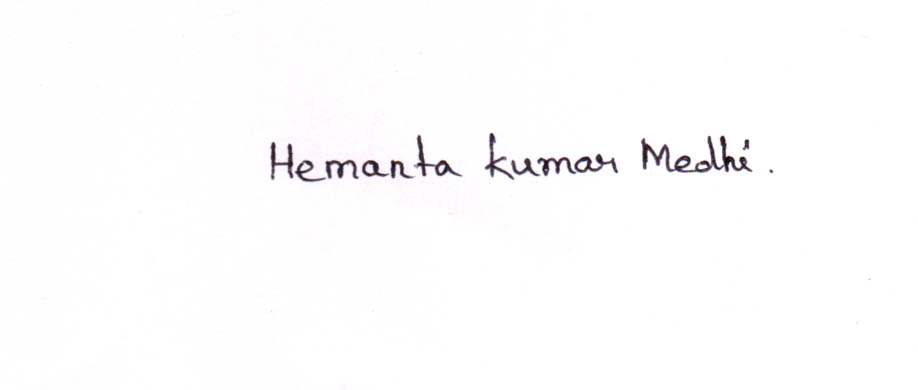 Hemanta kumar Medhi.